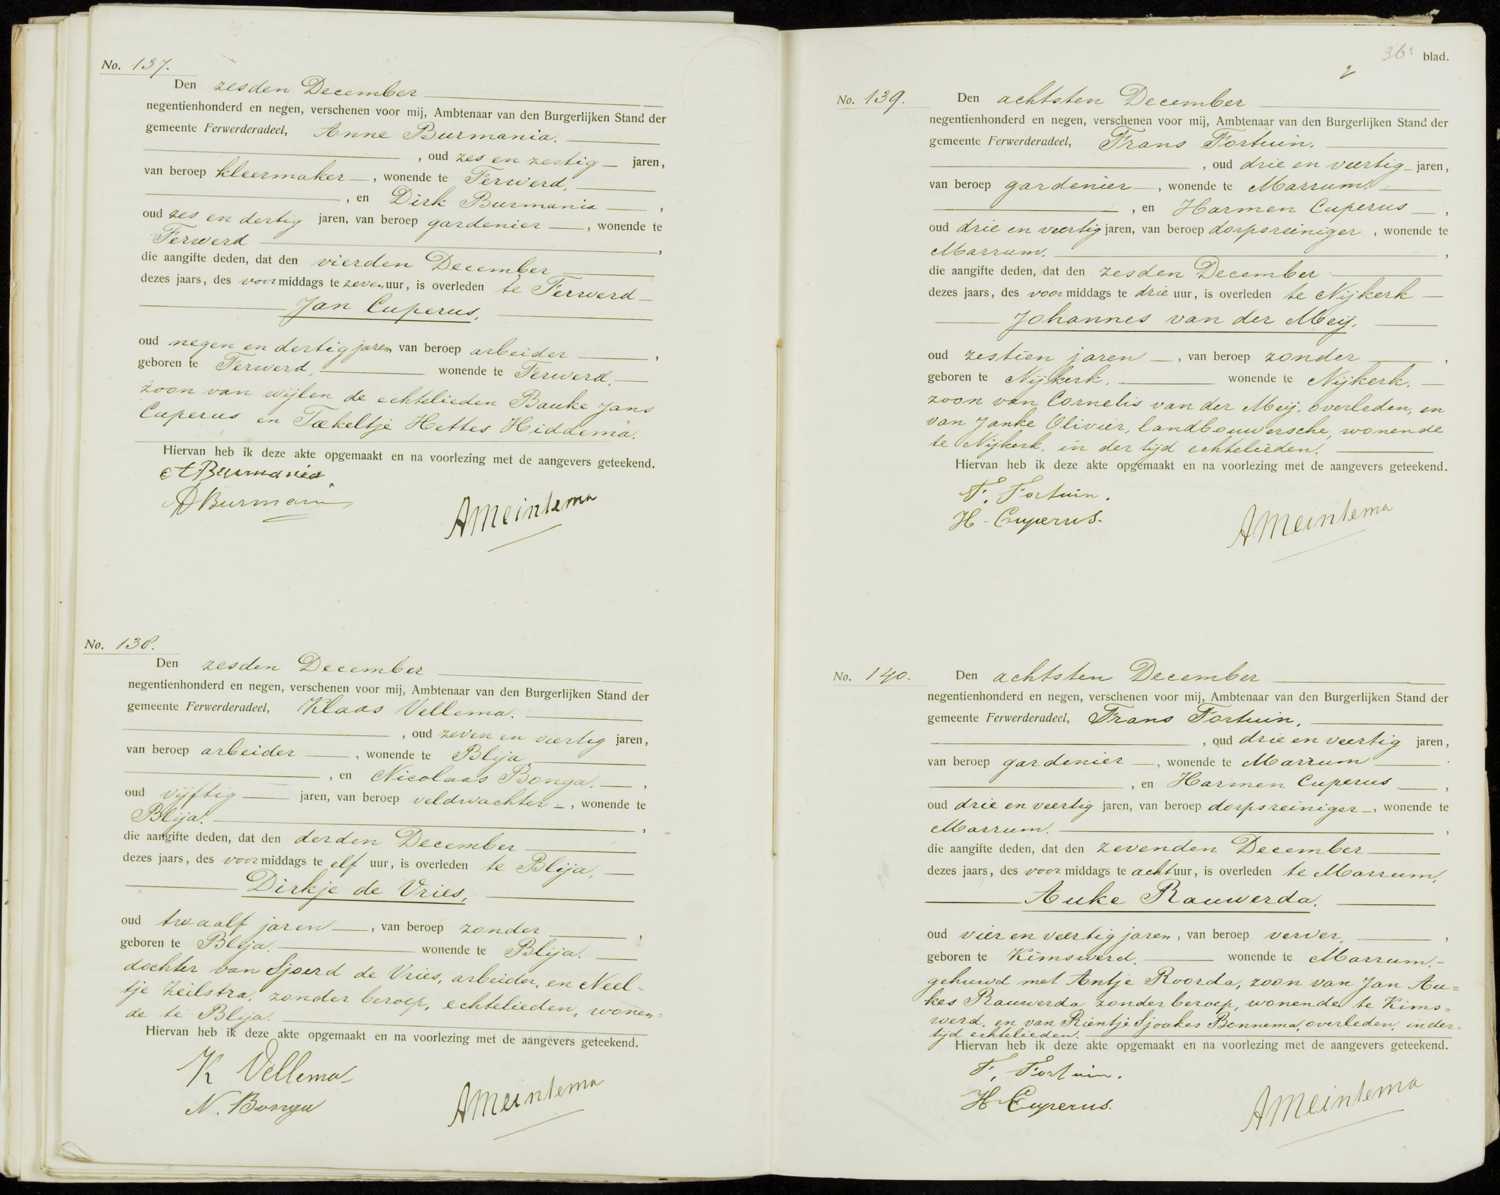 No. 137.
Den zesden December
negentienhonderd en negen, verschenen voor mij, Ambtenaar van den Burgerlijken Stand der
gemeente Ferwerderadeel, Anne Burmania.
, oud zes en zestig jaren,
van beroep kleermaker , wonende te Ferwerd.
, en Dirk Burmania ,
oud zes en dertig jaren, van beroep gardenier , wonende te
Ferwerd ,
die aangifte deden, dat den vierden December
dezes jaars, des voormiddags te zeven uur, is overleden te Ferwerd
Jan Cuperus.
oud negen en dertig jaren van beroep arbeider ,
geboren te Ferwerd. wonende te Ferwerd.
zoon van wijlen de echtelieden Bauke Jans
Cuperus en Tækeltje Hettes Hiddema.
Hiervan heb ik deze akte opgemaakt en na voorlezing met de aangevers geteekend.
A Burmania
D Burmania
AMeintema
No. 138.
Den zesden December
negentienhonderd en negen, verschenen voor mij, Ambtenaar van den Burgerlijken Stand der
gemeente Ferwerderadeel, Klaas Vellema.
, oud zeven en veertig jaren,
van beroep arbeider , wonende te Blija
, en Nicolaas Bonga. ,
oud vijftig jaren, van beroep veldwachter , wonende te
Blija. ,
die aangifte deden, dat den derden December
dezes jaars, des voormiddags te elf uur, is overleden te Blija.
Dirkje de Vries,
oud twaalf jaren , van beroep zonder ,
geboren te Blija. wonende te Blija.
dochter van Sjoerd de Vries, arbeider, en Neel-
tje Zeilstra, zonder beroep, echtelieden, wonen-
de te Blija.
Hiervan heb ik deze akte opgemaakt en na voorlezing met de aangevers geteekend.
K Vellema
N. Bonga
AMeintema
36e blad.
No. 139.
Den achtsten December
negentienhonderd en negen, verschenen voor mij, Ambtenaar van den Burgerlijken Stand der
gemeente Ferwerderadeel, Frans Fortuin.
, oud drie en veertig jaren,
van beroep gardenier , wonende te Marrum.
, en Harmen Cuperus ,
oud drie en veertig jaren, van beroep dorpsreiniger , wonende te
Marrum. ,
die aangifte deden, dat den zesden December
dezes jaars, des voormiddags te drie uur, is overleden te Nijkerk
Johannes van der Meij.
oud zestien jaren , van beroep zonder ,
geboren te Nijkerk. wonende te Nijkerk.
zoon van Cornelis van der Meij, overleden, en
van Janke Olivier, landbouwersche, wonende
te Nijkerk, in der tijd echtelieden.
Hiervan heb ik deze akte opgemaakt en na voorlezing met de aangevers geteekend.
F. Fortuin.
H. Cuperus.
AMeintema
No. 140.
Den achtsten December
negentienhonderd en negen, verschenen voor mij, Ambtenaar van den Burgerlijken Stand der
gemeente Ferwerderadeel, Frans Fortuin,
, oud drie en veertig jaren,
van beroep gardenier , wonende te Marrum
, en Harmen Cuperus ,
oud drie en veertig jaren, van beroep dorpsreiniger , wonende te
Marrum. ,
die aangifte deden, dat den zevenden December
dezes jaars, des voormiddags te acht uur, is overleden te Marrum.
Auke Rauwerda.
oud vier en veertig jaren, van beroep verver, ,
geboren te Kimswerd. wonende te Marrum.
gehuwd met Antje Roorda, zoon van Jan Au-
kes Rauwerda zonder beroep, wonende te Kims-
werd, en van Rientje Sjoukes Bonnema, overleden, inder-
tijd echtelieden.
Hiervan heb ik deze akte opgemaakt en na voorlezing met de aangevers geteekend.
F. Fortuin.
H Cuperus.
AMeintema